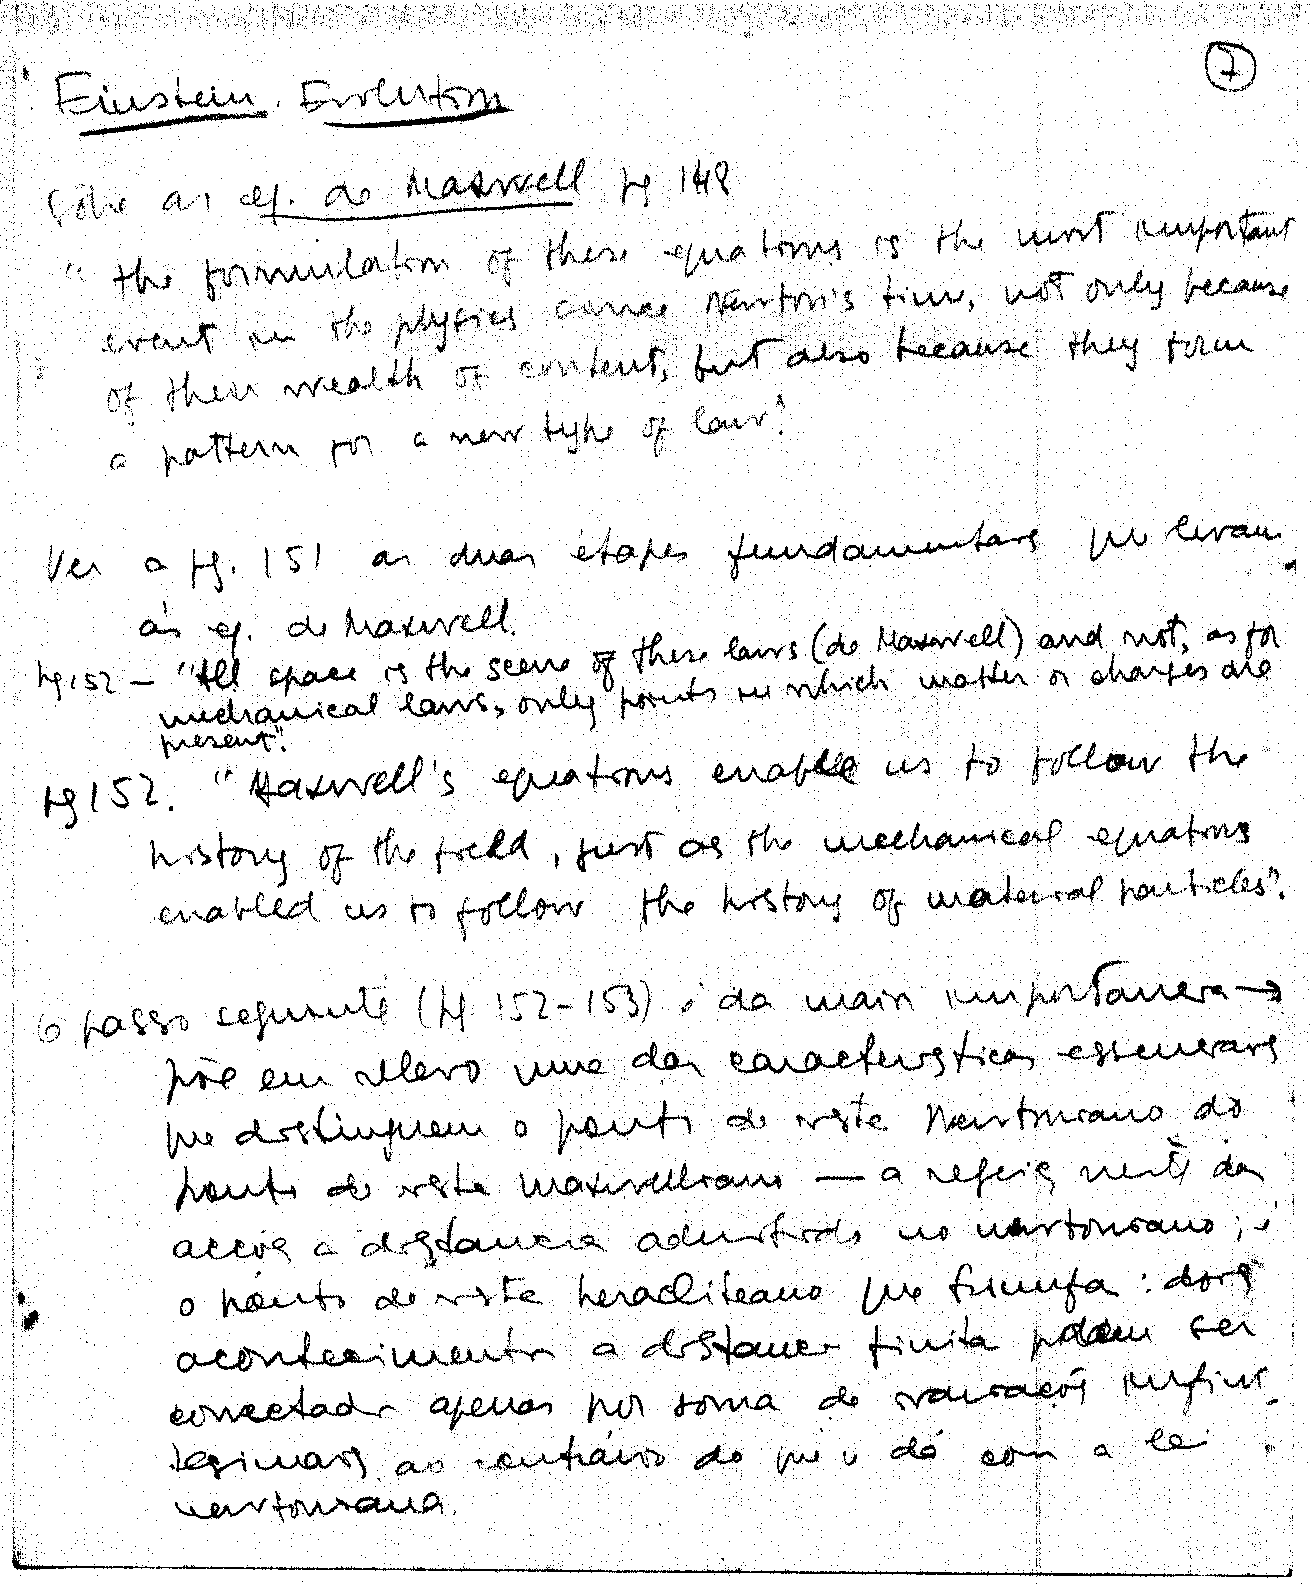 7
Einstein. Evolution
Sobre as eq. de Maxwell pg 148
"the formulation of these equations is the most important
event in the physics since Newton's time, not only because
of their wealth of content, but also because they form
a pattern for a new type of law."
Ver a pg. 151 as duas étapes fundamentais que levam
às eq. de Maxwell.
pg 152 – "All space is the scene of these laws (de Maxwell) and not, as for
mechanical laws, only points in which matter or charges are
present."
pg 152. "Maxwell's equations enable us to follow the
history of the field, just as the mechanical equations
enabled us to follow the history of material particles".
O passo seguinte (pg 152-153) é da maior importancia →
põe em relevo uma das caracteristicas essenciais
que distinguem o ponto de vista Newtoniano do
ponto de vista maxwelliano — a rejeição da
acção a distancia admitida no newtoniano; é
o ponto de vista heracliteano que triunfa: dois
acontecimentos a distancia finita podem ser
conectados apenas por soma de variações infini-
tesimais, ao contrário do que se dá com a lei
newtoniana.